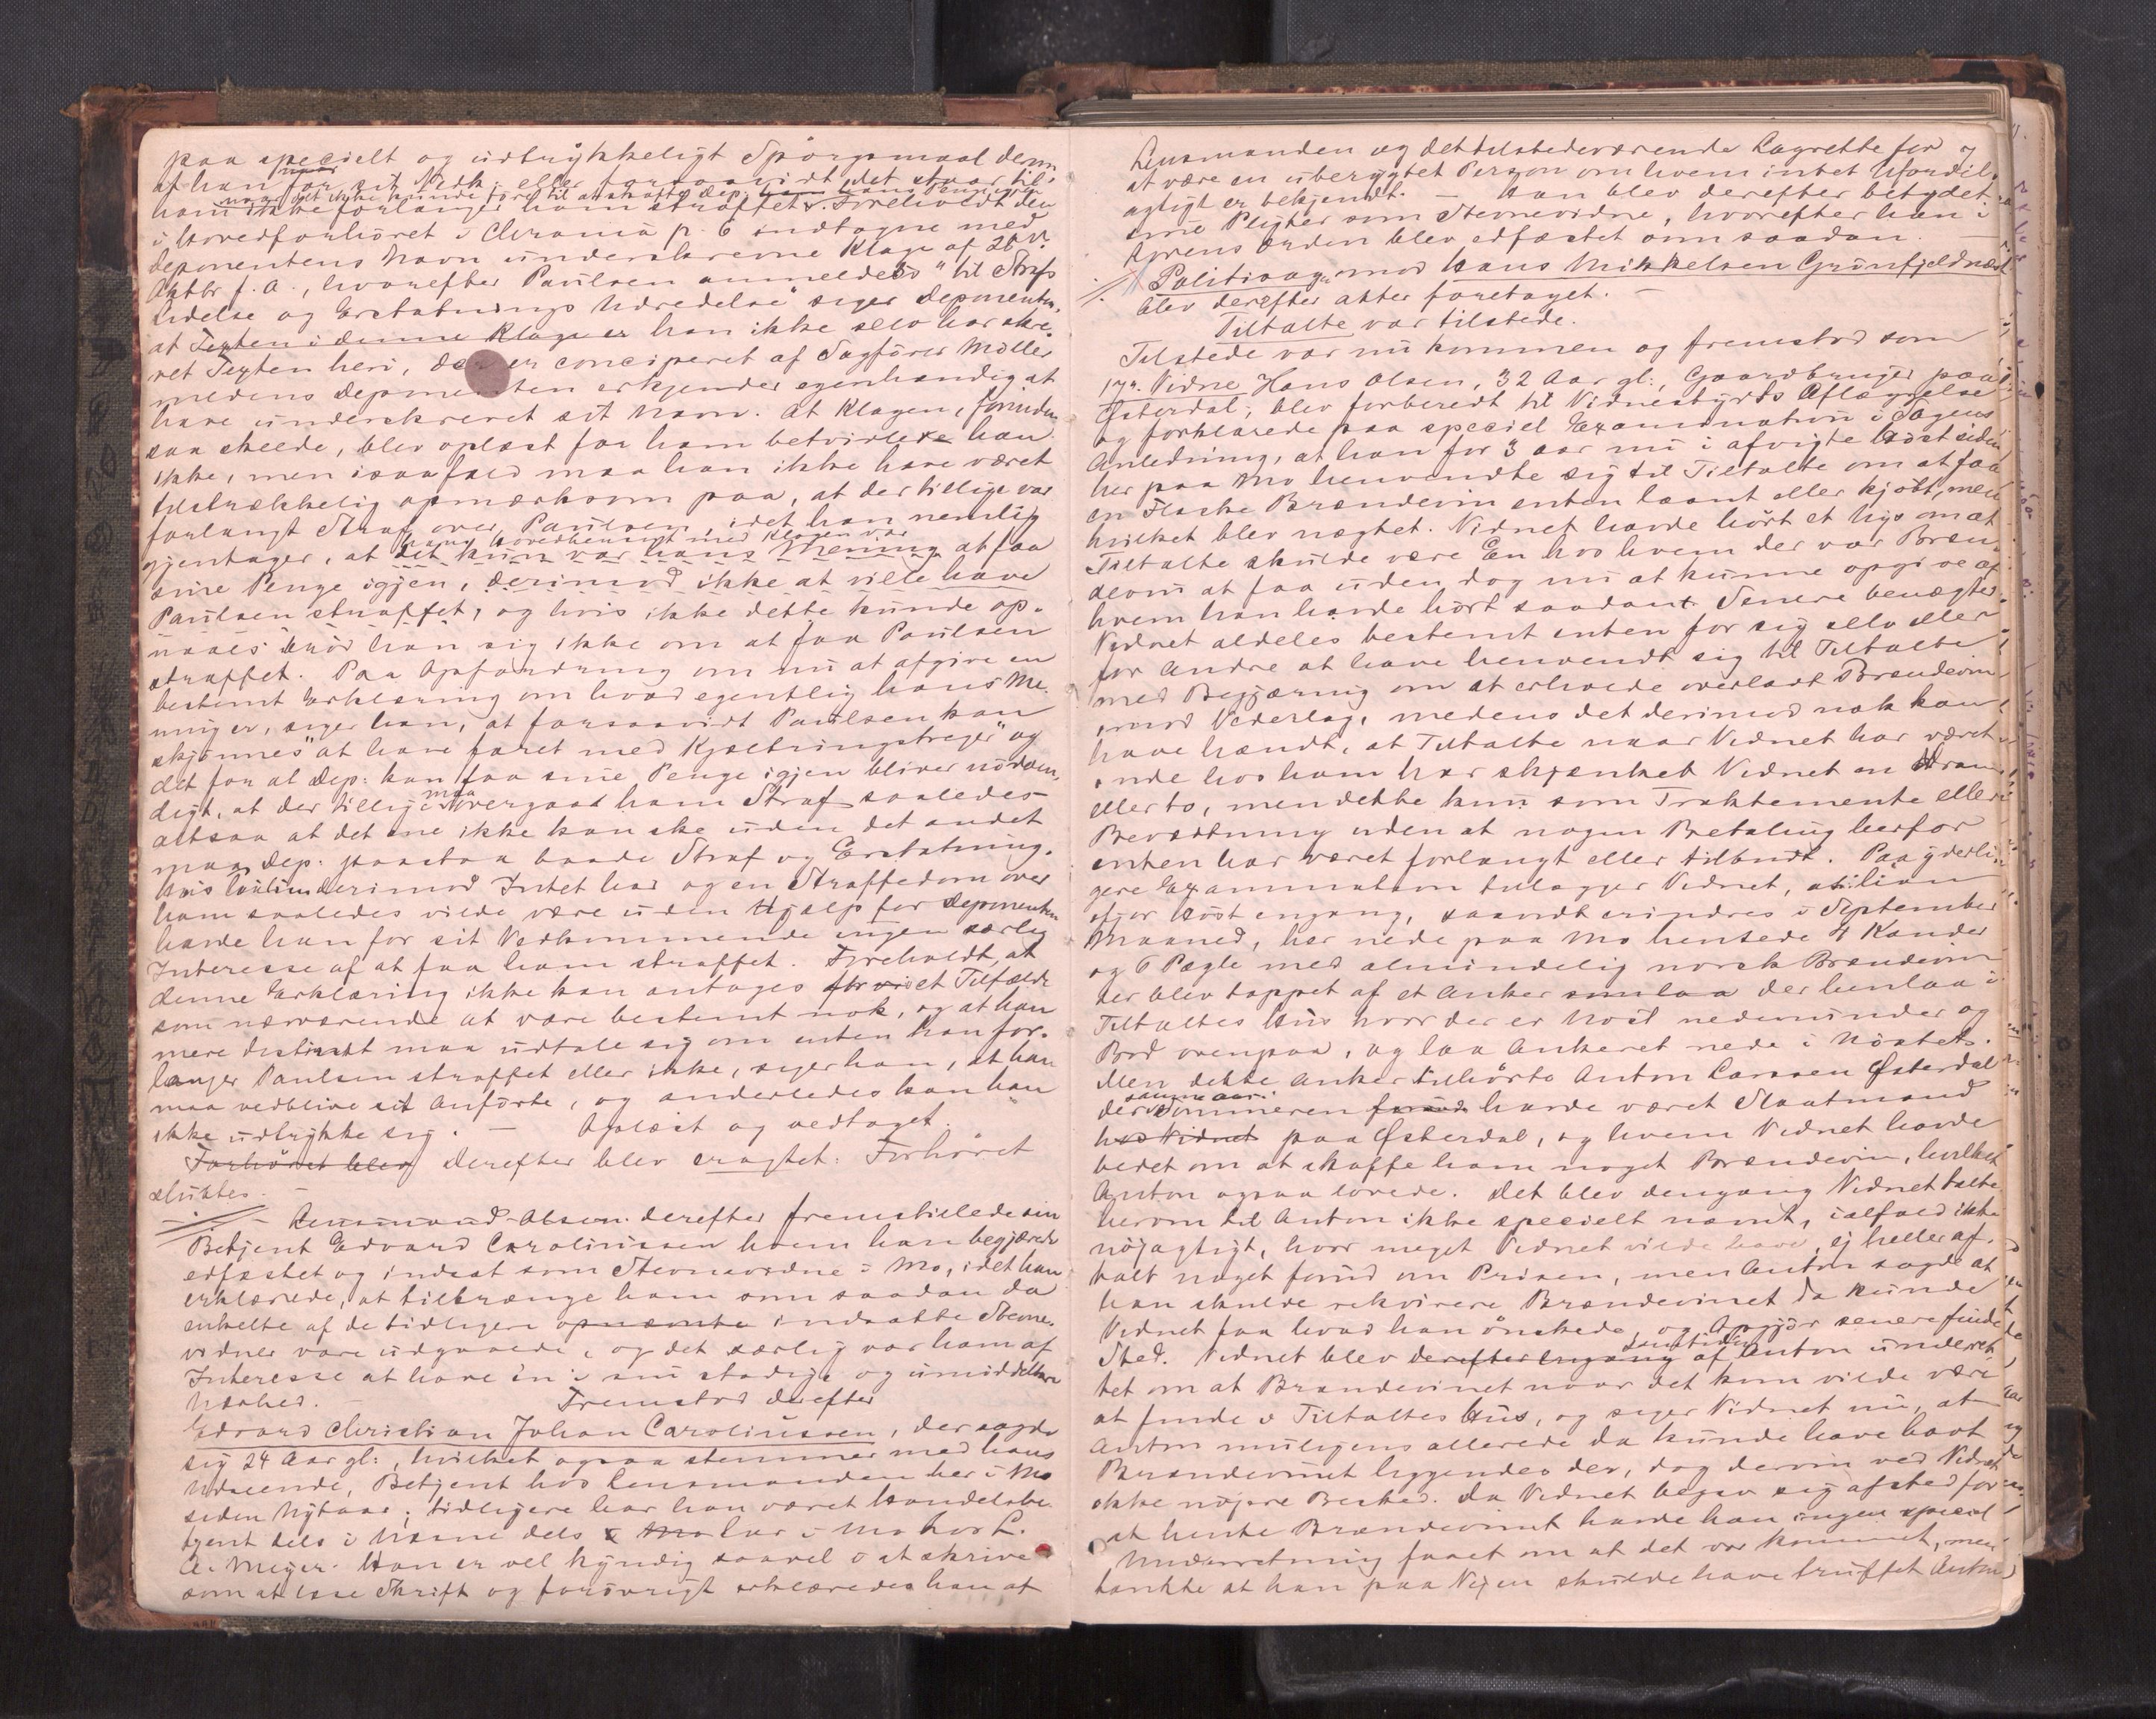 paa specielt og udtrykkeligt Spörgsmaal derom
at han for sit Vedk: eller forsaavidt det staar til
naar det ikke kunde føre til at skaffe Dep: hans Penge igjen
ham ikke forlanger ham straffet. Foreholdt den
i Hovedforhöret i Chrania p. 6 indtagne med
Deponentens Navn underskrevne Klage af 28de
Oktbr f. A., hvorefter Paulsen anmeldes "til Straf
lidelse og Erstatnings Udredelse" siger Deponenten,
at Texten i denne Klage er han ikke selv har skre-
vet Texten heri, der er conciperet af Sagförer Möller
medens Deponenten erkjender egenhændig at
have underskrevet sit Navn. At Klagen, forinden
saa skeede, blev oplæst for ham betvivler han
ikke, men isaafald maa han ikke have været
tilstrækkelig opmærksom paa, at der tillige var
forlangt Straf over Paulsen, idet han nemlig
hans Hovedhensigt med Klagen var
gjentager, at det kun var hans Mening at faa
sine Penge igjen, derimod ikke at ville have
Paulsen straffet, og hvis ikke dette kunde op-
naaes bröd han sig ikke om at faa Paulsen
straffet. Paa Opfordring om nu at afgive en
bestemt Erklæring om hvad egentlig hans Me-
ning er, siger han, at forsaavidt Paulsen kan
skjönnes "at have faret med Kjæltringstreger" og
det for at Dep: kan faa sine Penge igjen bliver nödven-
digt, at der tillige maa overgaa ham Straf saaledes
altsaa at det ene ikke kan ske uden det andet
maa Dep: paastaa baade Straf og Erstatning.
Hvis Paulsen derimod Intet har og en Straffedom over
ham saaledes vilde være uden Hjælp for Deponenten
havde han for sit Vedkommende ingen særlig
Interesse af at faa ham straffet. Foreholdt, at
denne Erklæring ikke kan antages for vi et Tilfælde
som nærværende at være bestemt nok, og at han
mere distinkt maa udtale sig om enten han for-
langer Paulsen straffet eller ikke, siger han, at han
maa vedblive sit Anförte, og anderledes kan han
ikke udtrykke sig. — Oplæst og vedtaget.
Forhöret blev Derefter blev eragtet: Forhöret
sluttes. —
Lensmand Olsen derefter fremstillede sin
Betjent Edvard Caroliussen hvem han begjærede
edfæstet og indsat som Stevnevidne i Mo, idet han
erklærede, at tiltrænge ham som saadan da
enkelte af de tidligere opnævnte indsatte Stevne-
vidner vare udgaaede, og det særlig var ham af
Interesse at have én i sin stadige og umiddelbare
Nærhed. — Fremstod derefter
Edvard Christian Johan Caroliussen, der sagde
sig 24 Aar gl:, hvilket ogsaa stemmer med hans
Udseende, Betjent hos Lensmanden her i Mo
siden Nytaar; tidligere har han været Handelsbe-
tjent dels i Næsne dels i Mo her i Mo hos L.
A. Meyer. Han er vel kyndig saavel i at skrive
som at læse Skrift og forövrigt erklæredes han af
Lensmanden og det tilstedeværende Lagrette for
at være en uberygtet Person om hvem intet Ufordel-
agtigt er bekjendt. — Han blev derefter betydet
sine Pligter som Stevnevidne, hvorefter han i
Lovens Orden blev edfæstet som saadan. —
Politisag mod Hans Mikkelsen Grönfjeldnæs
blev derefter atter foretaget. —
Tiltalte var tilstede.
Tilstede var nu kommen og fremstod som
17de Vidne Hans Olsen, 32 Aar gl:, Gaardbruger paa
Østerdal; blev forberedt til Vidnesbyrds Aflæggelse
og forklarede paa speciel Examination i Sagens
Anledning, at han for 3 Aar nu i afvigte Höst siden
her paa Mo henvendte sig til Tiltalte om at faa
en Flaske Brændevin enten laant eller kjöbt, men
hvilket blev nægtet. Vidnet havde hört et Nys om at
Tiltalte skulde være En hos hvem der var Bræn-
devin at faa uden dog nu at kunne opgive af
hvem han havde hört saadant. Senere benægter
Vidnet aldeles bestemt enten for sig selv eller
for Andre at have henvendt sig til Tiltalte
med Begjæring om at erholde overladt Brændevin
mod Vederlag, medens det derimod nok kan
have hændt, at Tiltalte naar Vidnet har været
inde hos ham har skjænket Vidnet en Dram
eller to, men dette kun som Traktemente eller
Beværtning uden at nogen Betaling herfor
enten har været forlangt eller tilbudt. Paa yderli-
gere Examination tillægger Vidnet, at han
ifjor Höst engang, saavidt erindres i September
Maaned, her nede paa Mo hentede 4 Kander
og 6 Pægle med almindelig norsk Brændevin
der blev tappet af et Anker som laa der henlaa i
Tiltaltes Hus hvor der er Nöst nedenunder og
Bod ovenpaa, og laa Ankeret nede i Nöstet.
Men dette Anker tilhörte Anton Larssen Østerdal
samme Aar
der Sommeren forud havde været Slaatmand
hos Vidnet paa Østerdal, og hvem Vidnet havde
bedet om at skaffe ham noget Brændevin, hvilket
Anton ogsaa lovede. Det blev dengang Vidnet talte
herom til Anton ikke specielt nævnt, ialfald ikke
nöjagtigt, hvor meget Vidnet vilde have, ej heller af-
talt noget forud om Prisen, men Anton sagde at
han skulde rekvirere Brændevinet da kunde
Vidnet faa hvad han önskede, og Opgjör senere finde
Sted. Vidnet blev derefter engang af Anton underret-
tet om at Brændevinet naar det kom vilde være
at finde i Tiltaltes Hus, og siger Vidnet nu, at
Anton muligens allerede da kunde have havt
Brændevinet liggendes der, dog derom ved Vidnet
ikke nöjere Besked. Da Vidnet begav sig afsted for
at hente Brændevinet havde han ingen speciel
Underretning faaet om at det var kommet, men
tænkte at han paa Vejen skulde have truffet Anton